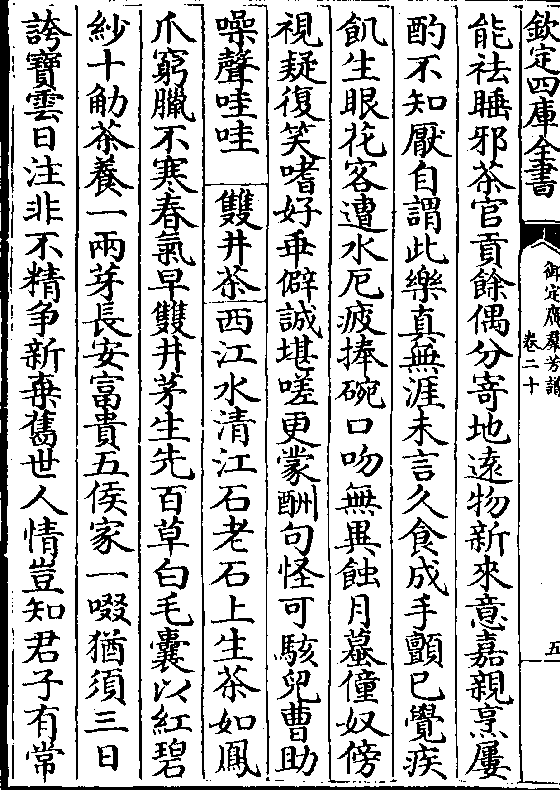 欽定四庫全書
御定廣羣芳譜
卷二十
五
能祛睡邪茶官貢餘偶分寄地遠物新來意嘉親烹屢
酌不知厭自謂此樂真無涯未言久食成手顫已覺疾
飢生眼花客遭水厄疲捧碗口吻無異蝕月蟇僮奴傍
視疑復笑嗜好乖僻誠堪嗟更蒙酬句怪可駭兒曹助
噪聲哇哇　雙井茶西江水清江石老石上生茶如鳳
爪窮臘不寒春氣早雙井茅生先百草白毛囊以紅碧
紗十觔茶養一兩芽長安富貴五侯家一啜猶須三日
誇寶雲日注非不精争新棄舊世人情豈知君子有常